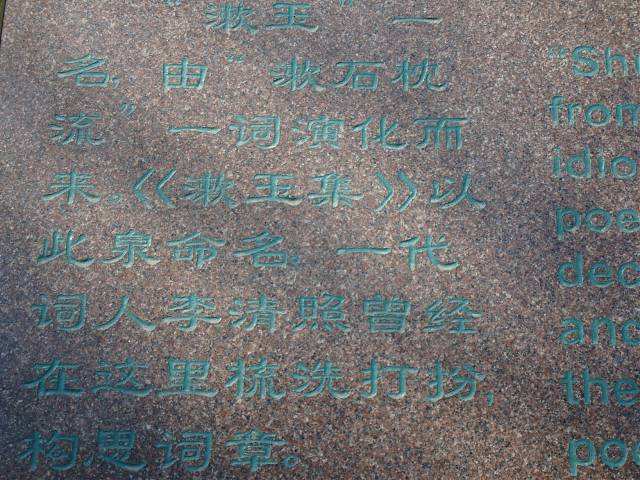 “漱玉”一
名,由“漱石枕
流”一词演化而
来。《漱玉集》以
此泉命名。一代
词人李清照曾经
在这里梳洗打扮,
构思词章。
“Shu
from
idio
poe
dec
and
the
poe